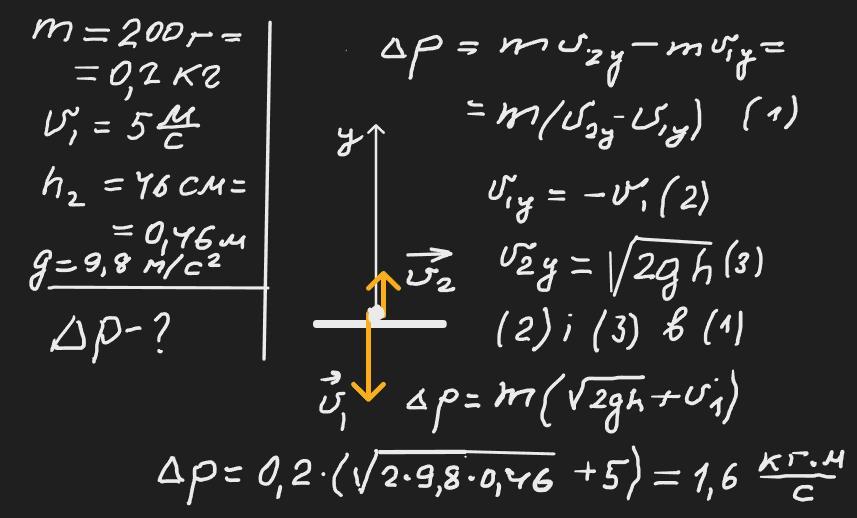 m = 200г =
= 0,2 кг
υ₁ = 5 м/с
h₂ = 46 см =
= 0,46 м
g = 9,8 м/с²
Δp - ?
y
υ₂
υ₁
Δp = mυ₂y − mυ₁y =
= m(υ₂y − υ₁y) (1)
υ₁y = −υ₁ (2)
υ₂y = √2gh (3)
(2) і (3) в (1)
Δp = m(√2gh + υ₁)
Δp = 0,2·(√2·9,8·0,46 + 5) = 1,6 кг·м/с